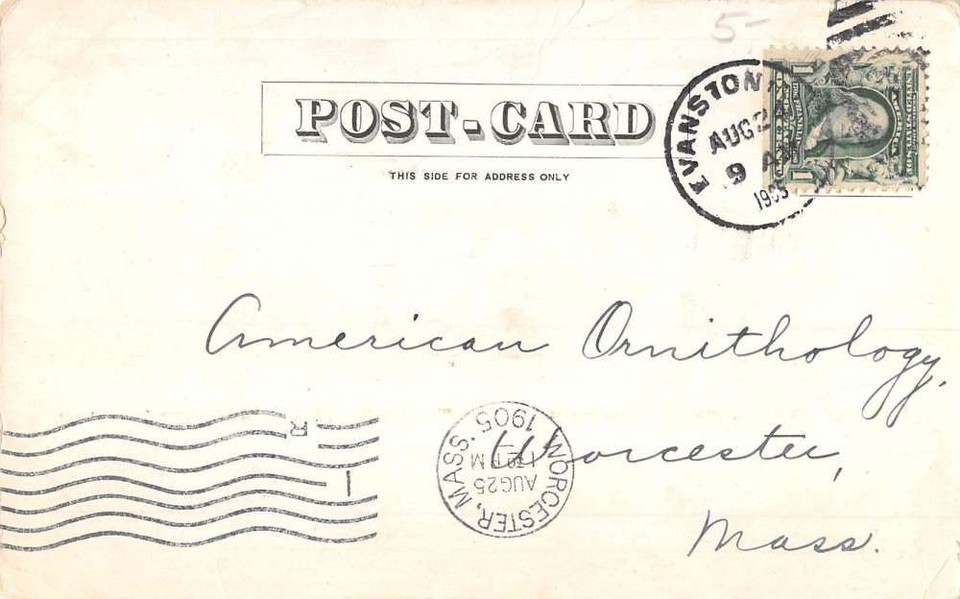 5-
POST-CARD
THIS SIDE FOR ADDRESS ONLY
EVANSTON
AUG 2
9 A
1905
1 1
American Ornithology,
Worcester,
Mass.
WORCESTER, MASS.
AUG 25
1905
R
1